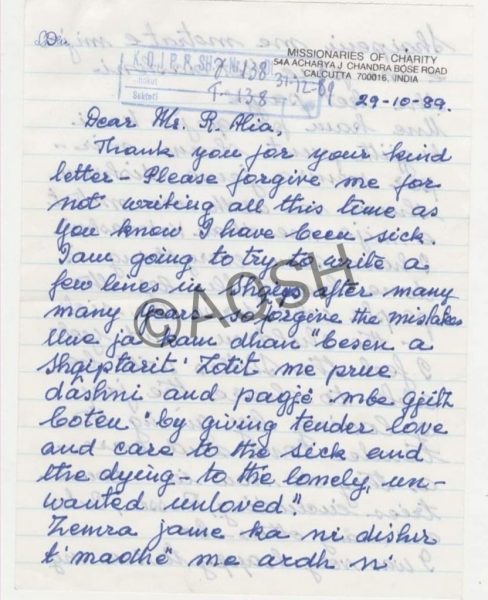 LDM
MISSIONARIES OF CHARITY
54A ACHARYA J. CHANDRA BOSE ROAD
CALCUTTA 700016, INDIA
138 31-12-89
Sukteti F. 138
29-10-89.
Dear Mr. R. Alia,
Thank you for your kind
letter - Please forgive me for
not writing all this time as
you know I have been sick.
I am going to try to write a
few lines in Shqip after many
many years - so forgive the mistakes
Une ja kam dhan "besen a
Shqiptarit" Zotit me prue
dashni and pagjë mbe gjith
boten "by giving tender love
and care to the sick and
the dying - to the lonely, un-
wanted unloved"
Zemra jame ka ni dishir
t'madhë me ardh ni
©AQSH